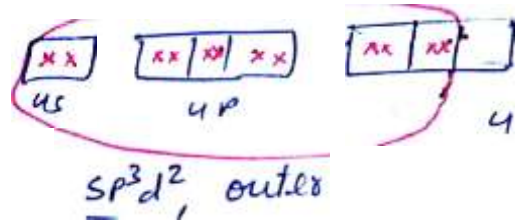 xx xx xx xx xx xx
4s 4p 4
sp³d², outer